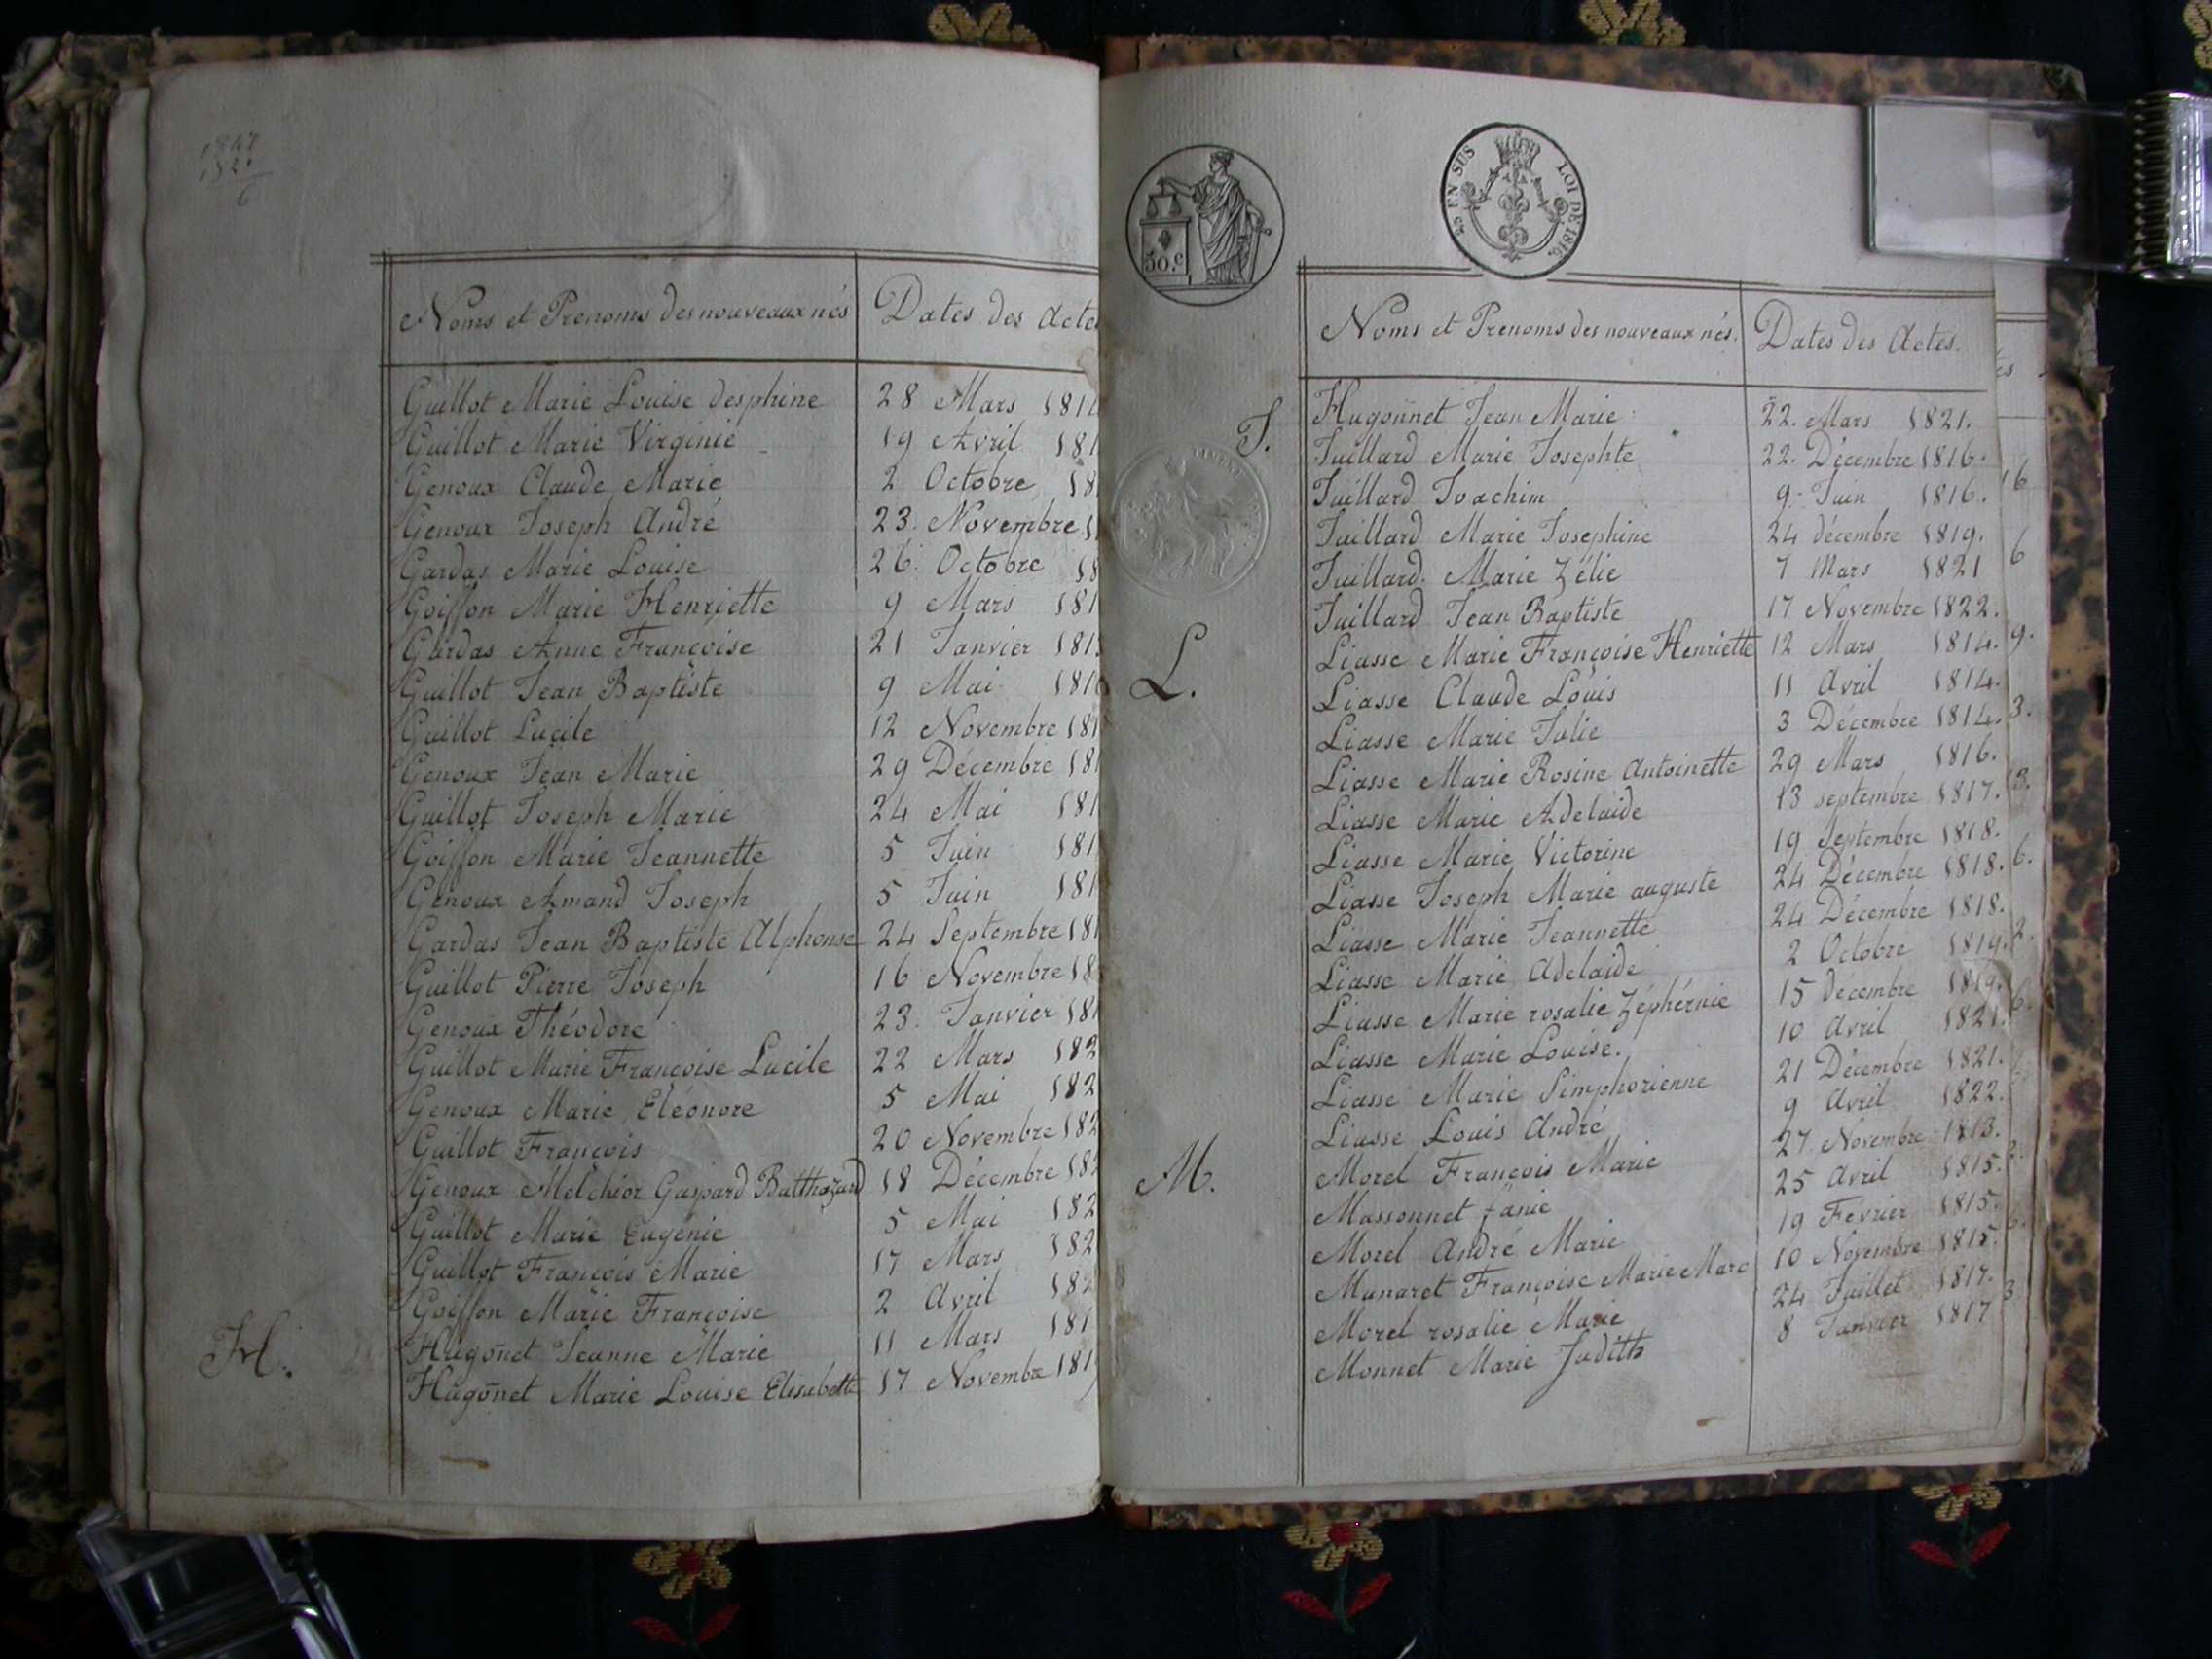 1847
1821
6
Noms et Prenoms des nouveaux nés Dates des Acte
Guillot Marie Louise desphine 28 Mars 181
Guillot Marie Virginie 19 Avril 181
Genoux Claude Marie 2 Octobre 18
Genoux Joseph André 23. Novembre 1
Gardas Marie Louise 26. Octobre 18
Goiffon Marie Henriette 9 Mars 181
Gardas Anne Françoise 21 Janvier 181
Guillot Jean Baptiste 9 Mai 181
Guillot Lucile 12 Novembre 181
Genoux Jean Marie 29 Décembre 181
Guillot Joseph Marie 24 Mai 181
Goiffon Marie Jeannette 5 Juin 181
Genoux Amand Joseph 5 Juin 181
Gardas Jean Baptiste Alphonse 24 Septembre 181
Guillot Pierre Joseph 16 Novembre 18
Genoux Théodore 23. Janvier 181
Guillot Marie Françoise Lucile 22 Mars 182
Genoux Marie Eléonore 5 Mai 182
Guillot François 20 Novembre 182
Genoux Melchior Gaspard Balthazard 18 Décembre 182
Guillot Marie Eugénie 5 Mai 182
Guillot François Marie 17 Mars 182
Goiffon Marie Françoise 2 Avril 182
H. Hugon̄et Jeanne Marie 11 Mars 181
Hugon̄et Marie Louise Elisabeth 17 Novembre 181
50.c
EN SUS LOI DE 1816.
Noms et Prenoms des nouveaux nés. Dates des Actes.
Hugon̄net Jean Marie 22. Mars 1821.
J. Juillard Marie Josephte 22. Décembre 1816.
Juillard Joachim 9. Juin 1816.
Juillard Marie Josephine 24 décembre 1819.
Juillard. Marie Zélie 7 Mars 1821
Juillard Jean Baptiste 17 Novembre 1822.
Liasse Marie Françoise Henriette 12 Mars 1814.
L. Liasse Claude Louis 11 Avril 1814.
Liasse Marie Julie 3 Décembre 1814.
Liasse Marie Rosine Antoinette 29 Mars 1816.
Liasse Marie Adelaide 13 septembre 1817.
Liasse Marie Victorine 19 Septembre 1818.
Liasse Joseph Marie auguste 24 Décembre 1818.
Liasse Marie Jeannette 24 Décembre 1818.
Liasse Marie Adelaide 2 Octobre 1819.
Liasse Marie rosalie Zéphérnie 15 décembre 1819.
Liasse Marie Louise. 10 Avril 1821.
Liasse Marie Simphorienne 21 Décembre 1821.
Liasse Louis André 9 Avril 1822.
M. Morel François Marie 27. Novembre 1813.
Massonnet fanie 25 Avril 1815.
Morel André Marie 19 Fevrier 1815.
Munaret Françoise Marie Marc 10 Novembre 1815.
Morel rosalie Marie 24 Juillet 1817.
Monnet Marie Judith 8 Janvier 1817